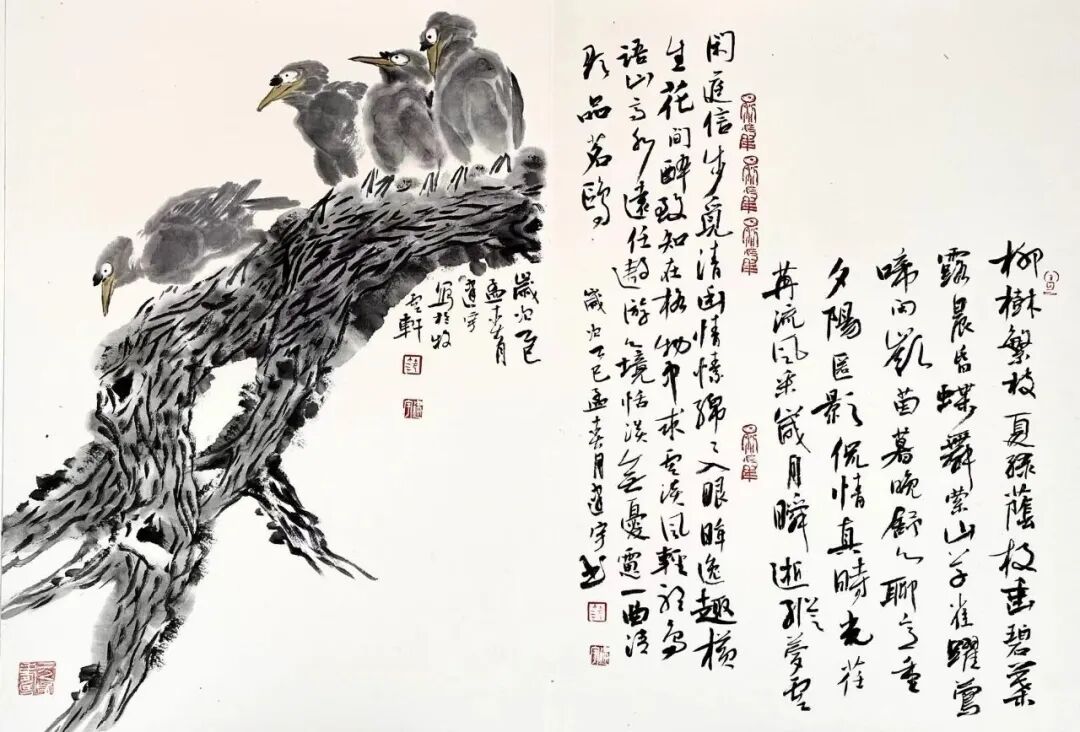 柳樹繁枝夏綠蔭枝垂碧葉
露晨昏蝶舞縈山草雀躍鶯
啼鬧苗暮晚舒心聊意重
夕陽匿影侃情真時光荏
苒流風采歲月瞬逝縱夢雲
閑庭信步覓清幽情愫綿〻入眼眸逸趣橫
生花間醉致知在格物中求雲淡風輕鳥
語山高水遠任遨游境恬淡無憂慮一曲清
歌品茗鷗
歲次乙巳孟春月道宇书
歲次乙巳
孟春月
道宇
寫於牧
雲軒